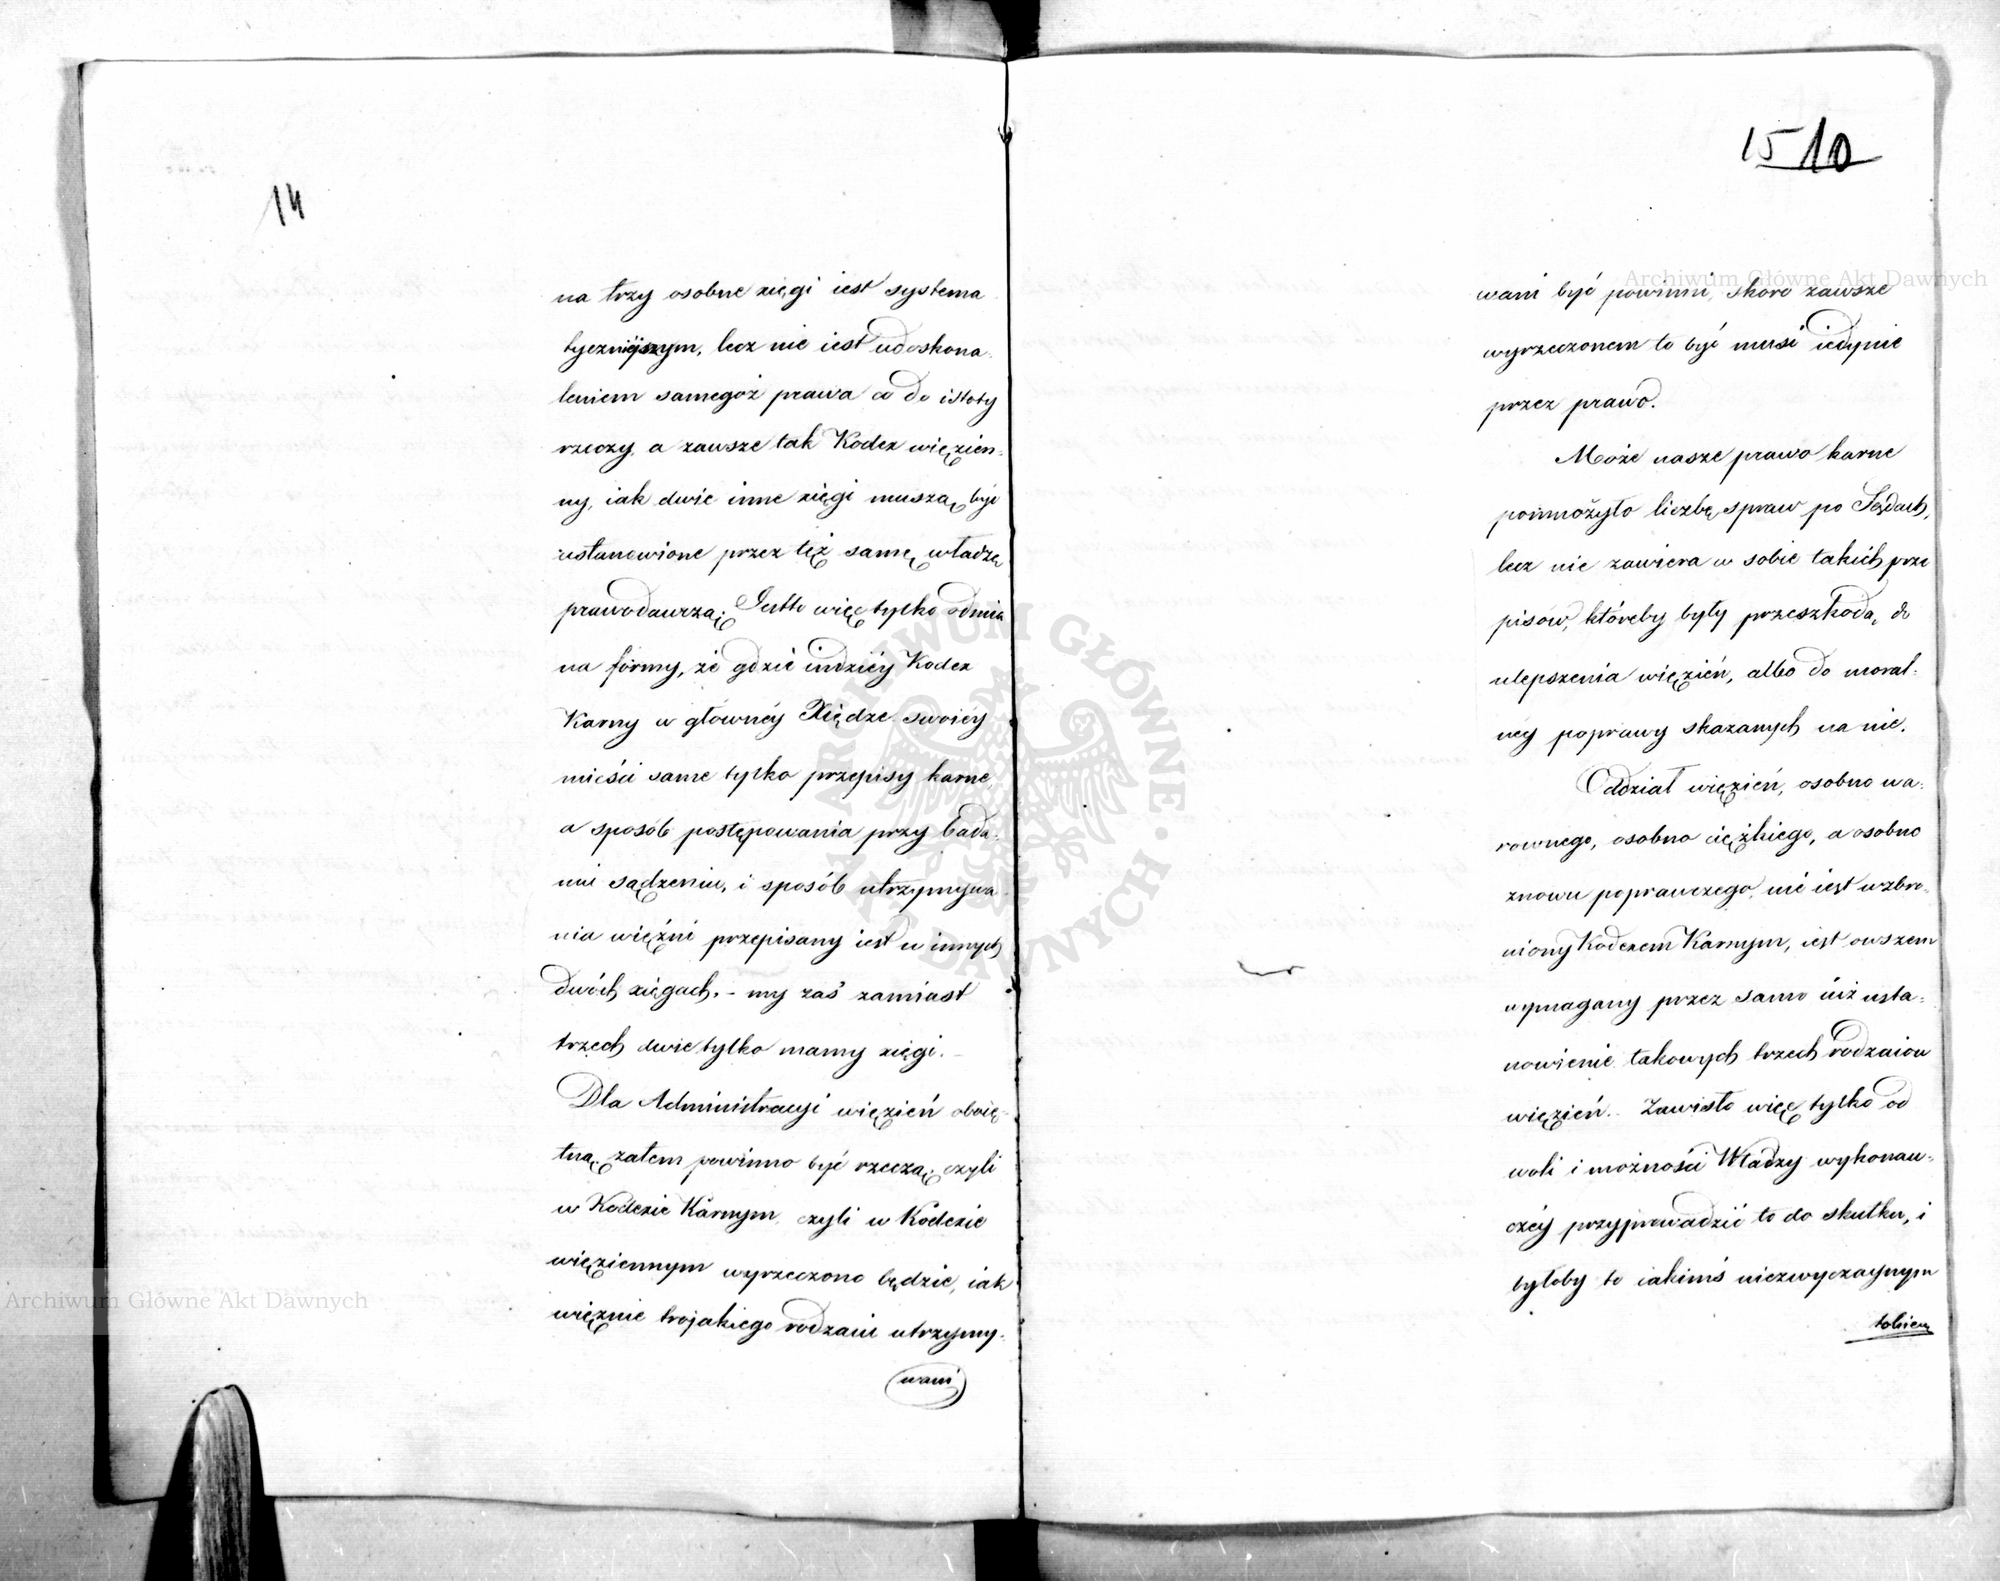 14
na trzy osobne xięgi iest systema
tyczniejszym, lecz nie iest udoskona-
leniem samegoż prawa co do istoty
rzeczy, a zawsze tak Kodex więzien-
ny, iak dwie inne xięgi muszą być
ustanowione przez tęż samę władzę
prawodawczą; Jestto więc tylko odmia
na formy, że gdzie indziéy Kodex
Karny w głownéy Xiędze swoiéy
mieści same tylko przepisy karne,
a sposób postępowania przy bada-
niu sądzeniu, i sposób utrzymywa-
nia więźni przepisany iest w innych
dwóch xięgach. - my zaś zamiast
trzech dwie tylko mamy xięgi. -
Dla Administracyi więzień oboię-
tną zatem powinno być rzeczą, czyli
w Kodexie Karnym, czyli w Kodexie
więziennym wyrzeczono będzie, iak
więźnie trojakiego rodzaiu utrzymy-
wani
15 10
wani być powinni, skoro zawsze
wyrzeczonem to być musi iedynie
przez prawo.
Może nasze prawo karne
pomnożyło liczbę spraw po Sądach,
lecz nie zawiera w sobie takich prze
pisów, któreby były przeszkodą do
ulepszenia więzień, albo do moral-
néy poprawy skazanych na nie.
Oddział więzień, osobno wa-
rownego, osobno ciężkiego, a osobno
znowu poprawczego, nie iest wzbro-
niony Kodexem Karnym, iest owszem
wymagany przez samo iuż usta-
nowienie takowych trzech rodzaiow
więzień. Zawisło więc tylko od
woli i możności Władzy wykonaw-
czéy przyprowadzić to do skutku, i
byłoby to iakimś niezwyczaynym
Archiwum Główne Akt Dawnych
Archiwum Główne Akt Dawnych
ARCHIWUM GŁÓWNE • AKT DAWNYCH •